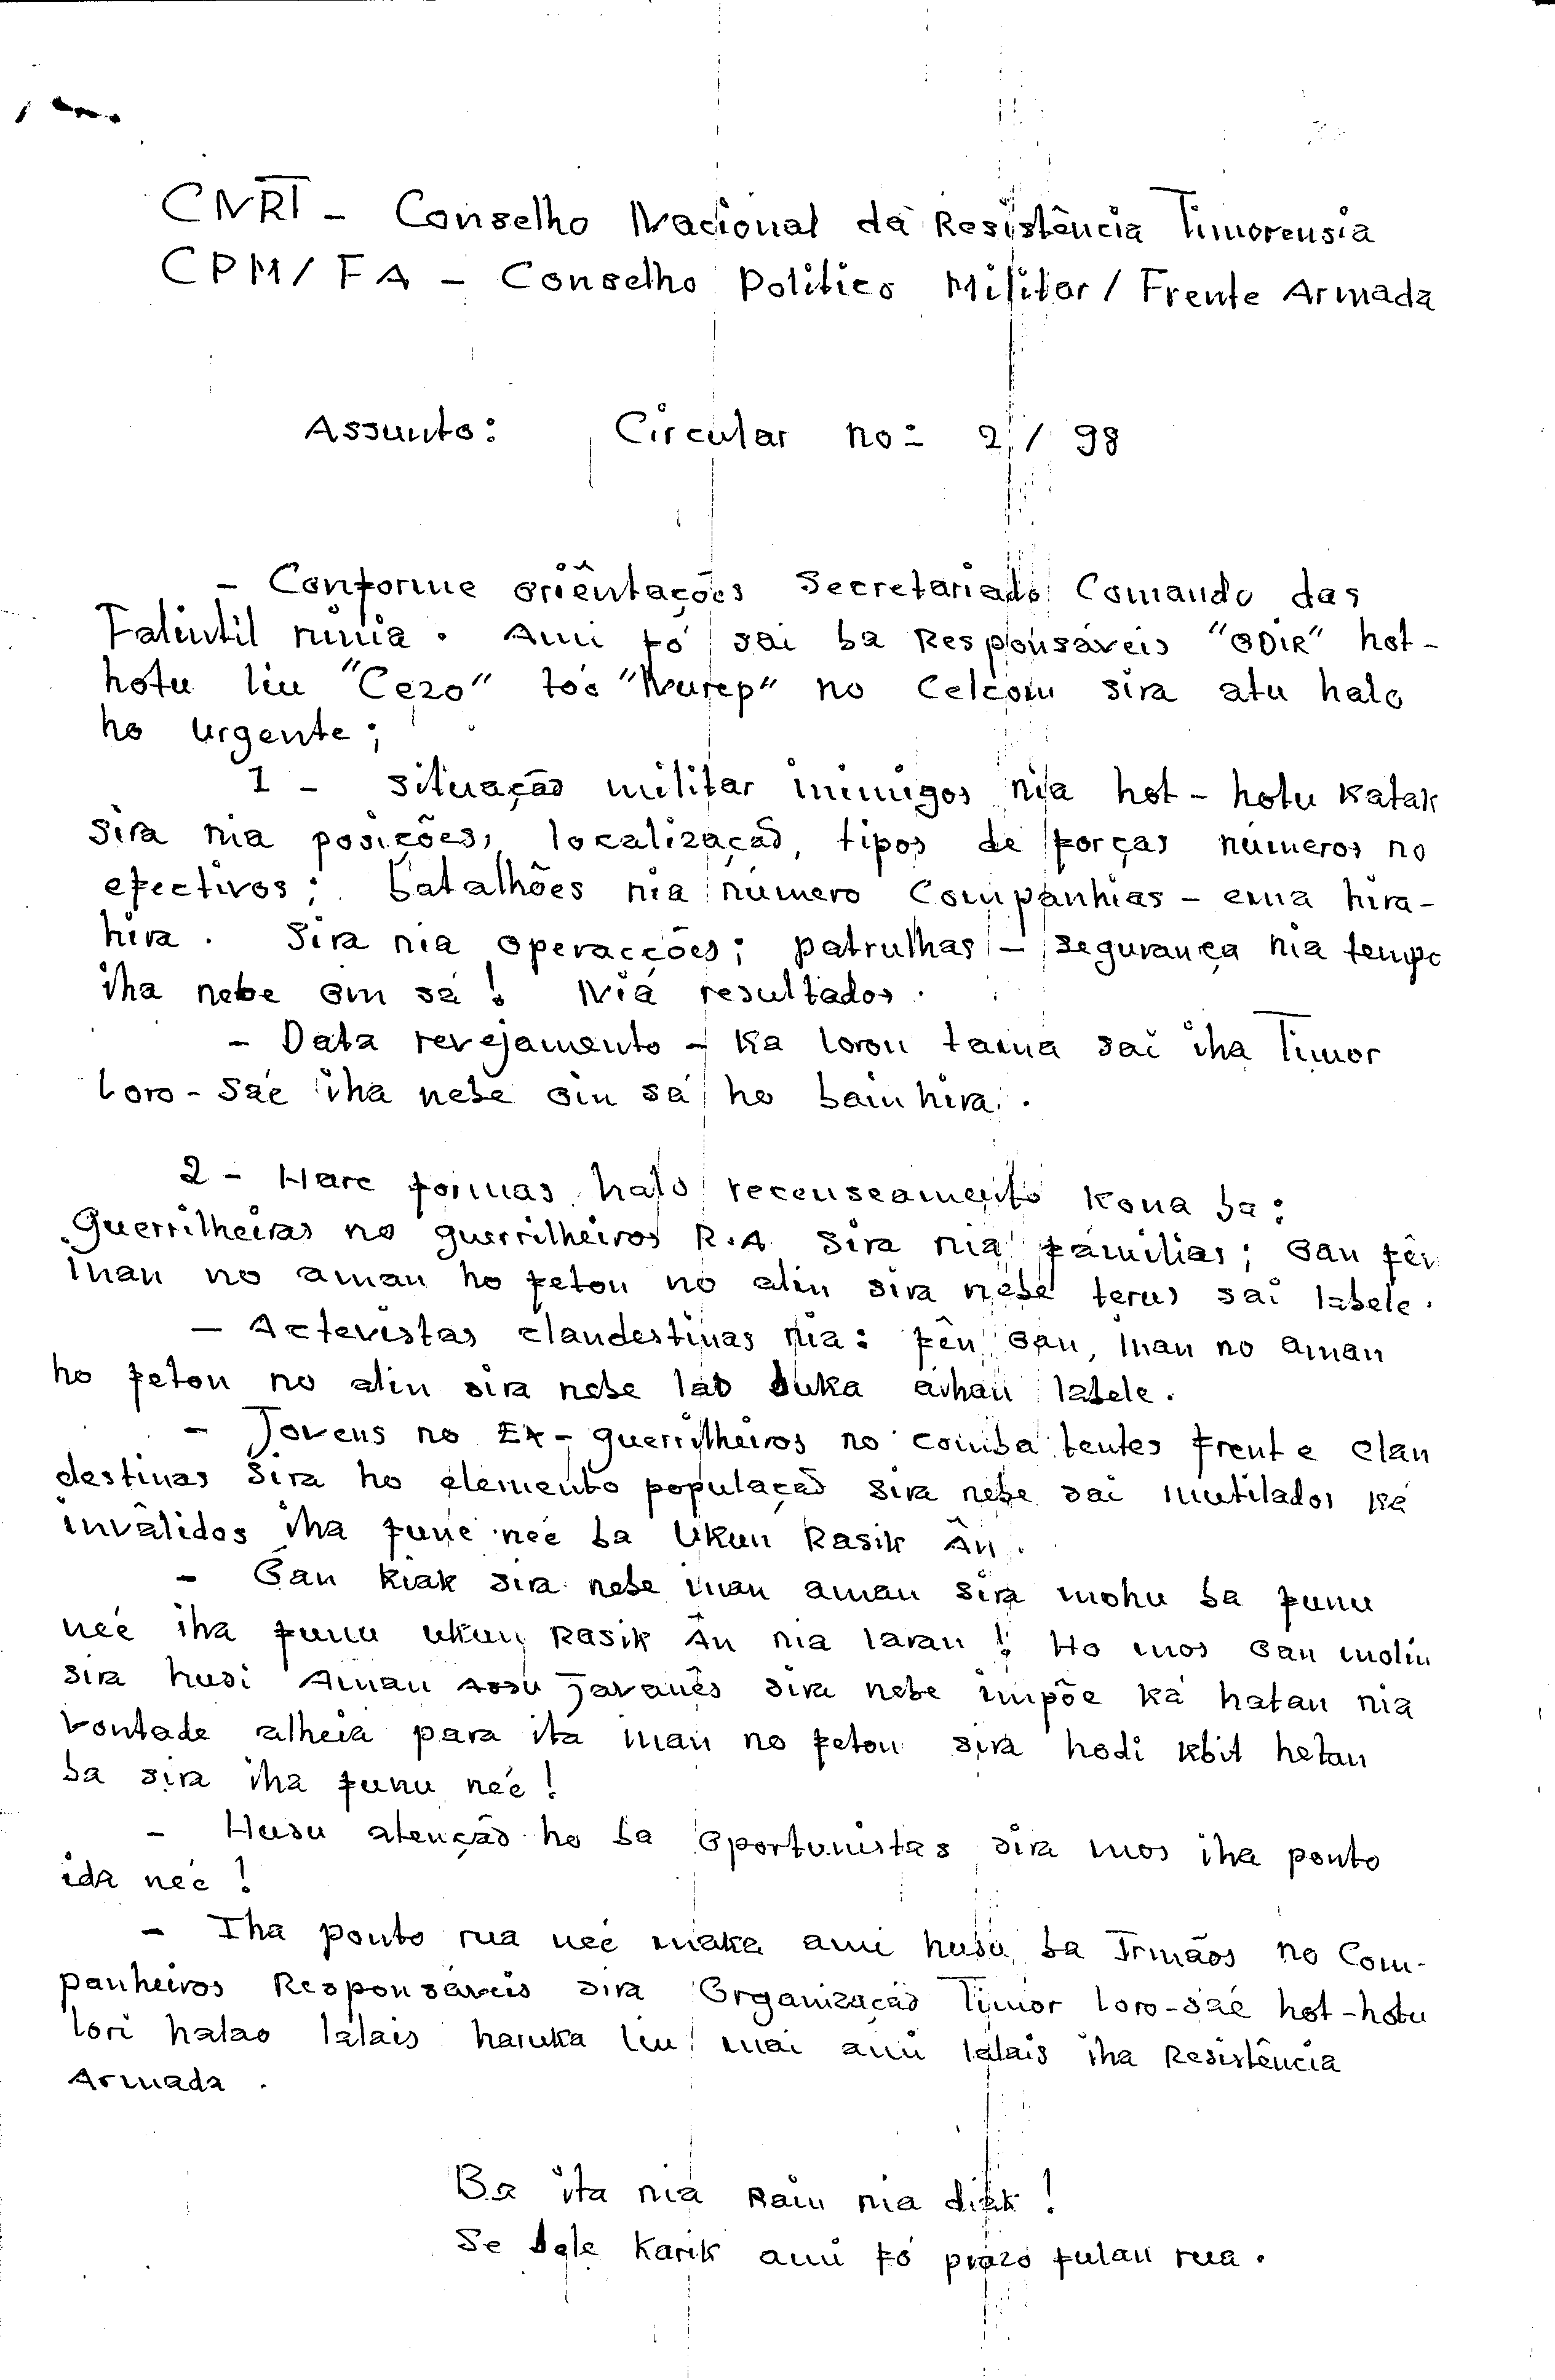 CNRT - Conselho Nacional da Resistência Timorensia
CPM/FA - Conselho Politico Militar / Frente Armada
Assunto: Circular no= 2 / 98
- Conforme oriêntações Secretariado Comando das
Falintil ninia. Ami fó sai ba Responsáveis "ODIR" hot-
hotu liu "Cezo" tó'o "Nurep" no Celcom sira atu halo
ho urgente;
1 - Situação militar inimigos nia hot-hotu katak
sira nia posições, localização, tipos de forças números no
efectivos; batalhões nia número Companhias - ema hira-
hira. Sira nia operacções; patrulhas - segurança nia tempo
iha nebe oin sá! Nia resultados.
- Data revejamento - ka loron tama sai iha Timor
Loro-Sáe iha nebe oin sá ho bainhira.
2 - Hare formas halo recenseamento kona ba:
Guerrilheiras no guerrilheiros R.A sira nia famílias; oan fên
inan no aman ho feton no alin sira nebe terus sai labele.
- Actevistas clandestinas nia: fên oan, inan no aman
ho feton no alin sira nebe lao buka aihan labele.
- Jovens no Ex-guerrilheiros no combatentes frente clan
destinas sira ho elemento população sira nebe sai mutilados ka
inválidos iha funu neé ba Ukun Rasik Ân.
- Oan kiak sira nebe inan aman sira mohu ba funu
neé iha funu ukun Rasik Ân nia laran! Ho mos oan molin
sira husi Aman Assu Javanês sira nebe impõe ka hatan nia
vontade alheia para ita inan no feton sira hodi kbit hetan
ba sira iha funu neé!
- Husu atenção ho ba oportunistas sira mos iha ponto
ida neé!
- Iha ponto rua neé maka ami husu ba Irmãos no Com-
panheiros Responsáveis sira Organização Timor Loro-sáe hot-hotu
lori halao lalais haruka liu mai ami lalais iha Resistência
Armada.
Ba ita nia Rain nia diak!
Se bele karik ami fó prazo fulan rua.